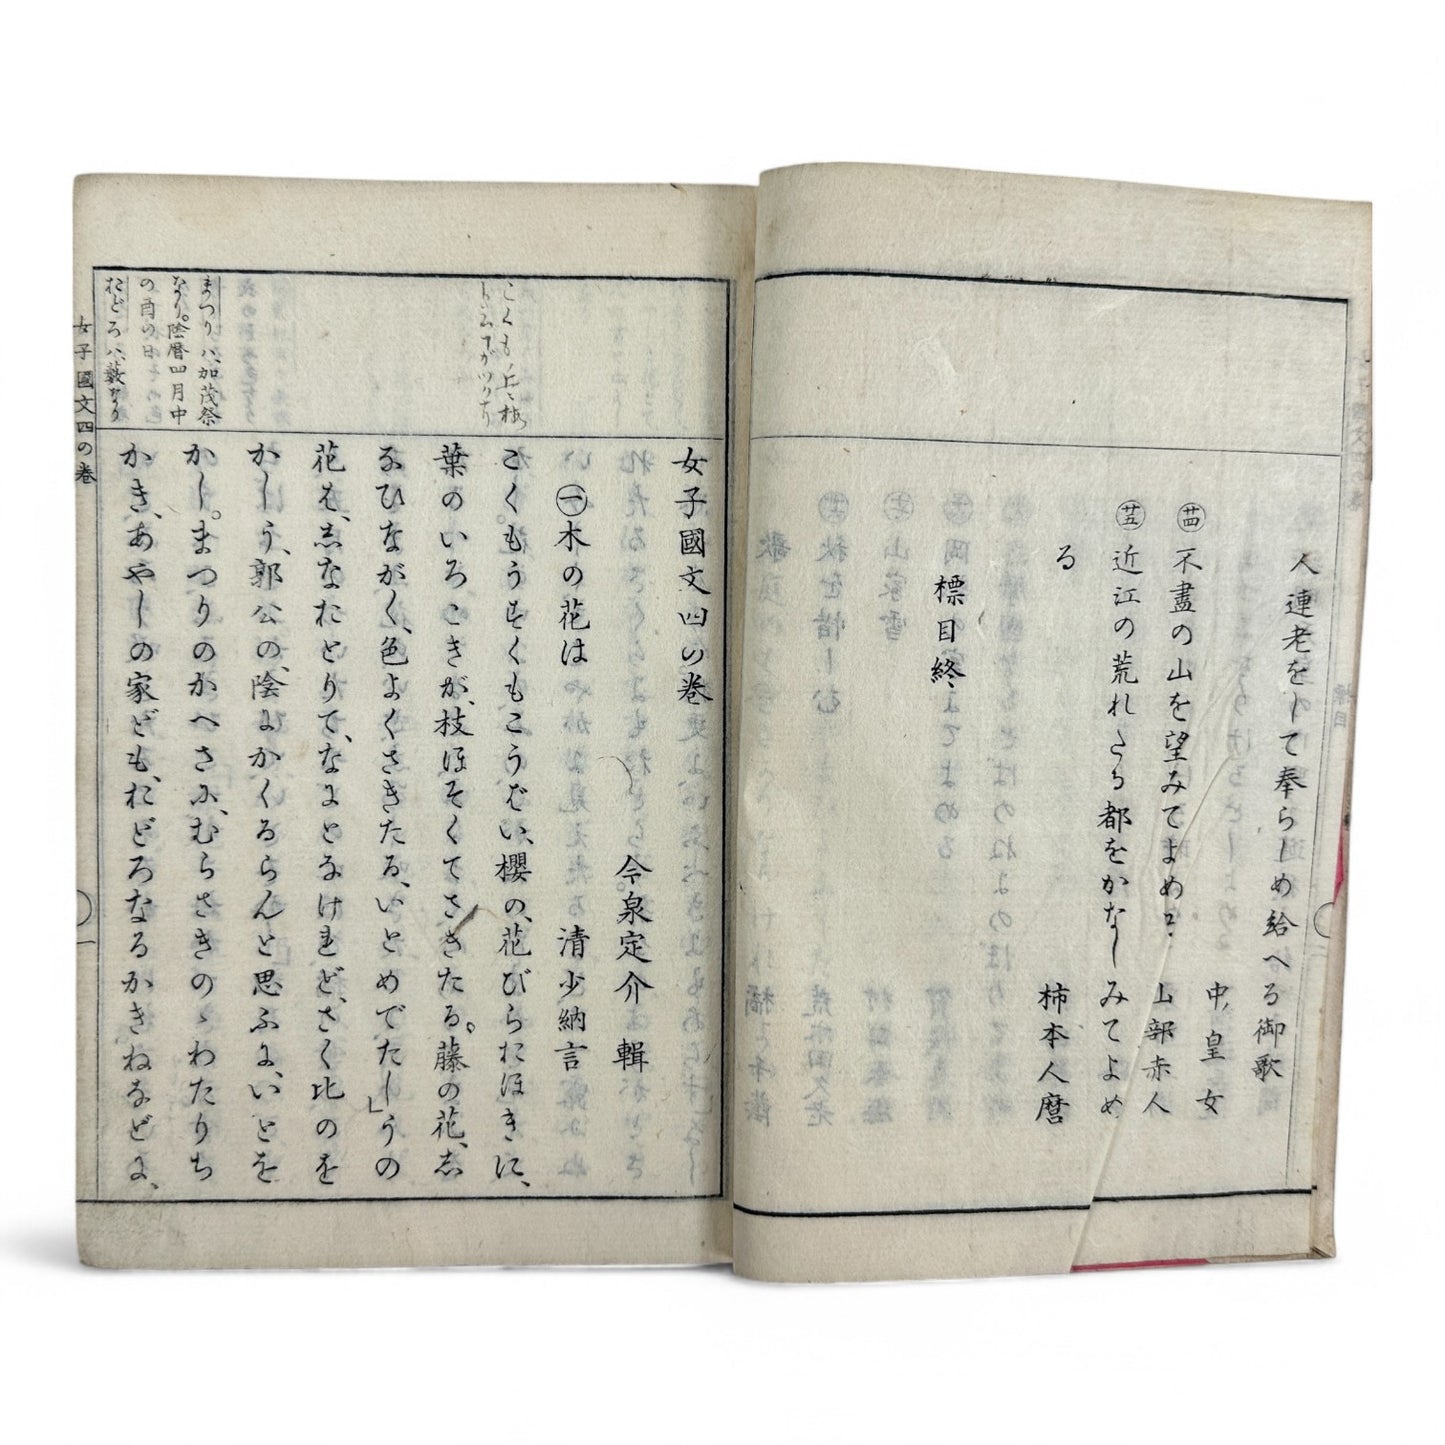 人連老をして奉らしめ給へる御歌
中皇女
廿四 不盡の山を望みてよめる
山部赤人
廿五 近江の荒れたる都をかなしみてよめ
る
柿本人麿
標目終
女子國文四の巻
今泉定介輯
㊀木の花は 清少納言
こくもうすくもこうばい、櫻の、花びらおほきに、
葉のいろこきが、枝ほそくてさきたる。藤の花、し
なひながく、色よくさきたる、いとめでたし」うの
花は、しなおとりて、なにとなけれど、さく比のを
かしう、郭公の、陰にかくるらんと思ふに、いとを
かし。まつりのかへさに、むらさきのゝわたりち
かき、あやしの家ども、おどろなるかきねなどに、
まつりハ、加茂祭
なり。陰暦四月中
の酉の日
おどろハ、藪なり
女子國文四の巻
一